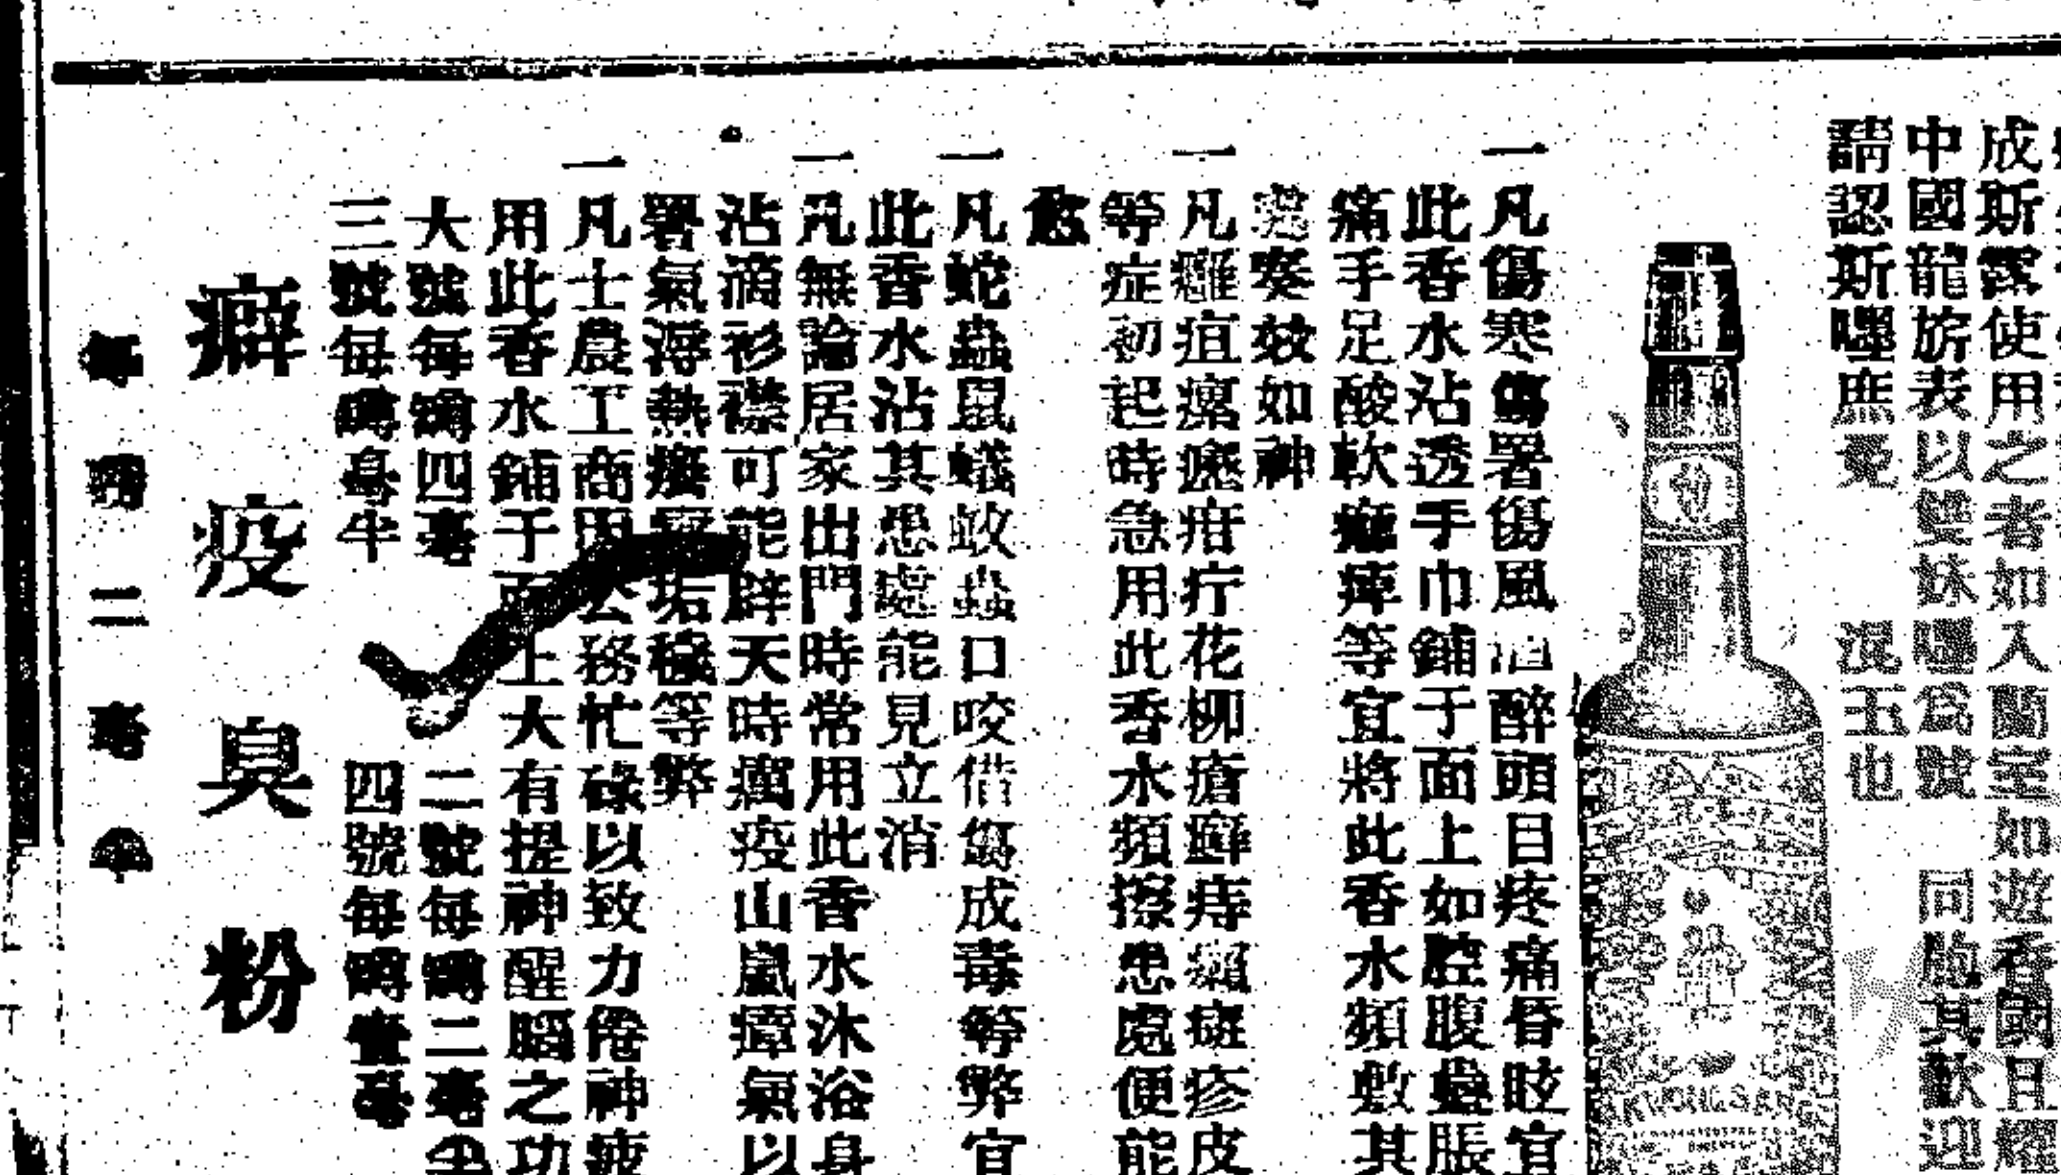 成斯露使用之者如入蘭室如遊香國且耀
中國龍旂表以雙妹嚜為號　同胞其歡迎
請認斯嚜庶免　混玉也
一凡傷寒傷署傷風酒醉頭目疼痛昏眩宜
此香水沾透手巾鋪于面上如腔腹蠱脹
痛手足酸軟痺等宜將此香水頻敷其
處奏效如神
一凡癰疽瘰癧疳疔花柳瘡癬痔癩癍疹皮
等症初起時急用此香水頻擦患處便能
愈
一凡蛇蟲鼠蟻蚊虫口咬借傷成毒等弊宜
此香水沾其患處能見立消
一凡無論居家出門時常用此香水沐浴身
沾滴衫襟可能辟天時癘疫山嵐瘴氣以
署氣溽熱垢穢等弊
一凡士農工商因公務忙碌以致力倦神疲
用此香水鋪于面上大有提神醒腦之功
大號每罇四毫　二號每罇二毫半
三號每罇毫半　四號每罇壹毫
癖疫臭粉
每罇二毫半
KWONG SANG